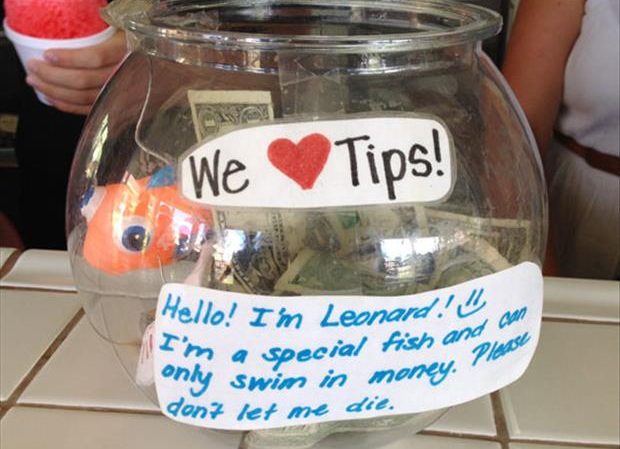 We ❤ Tips!
Hello! I'm Leonard! :)
I'm a special fish and can
only swim in money. Please
don't let me die.